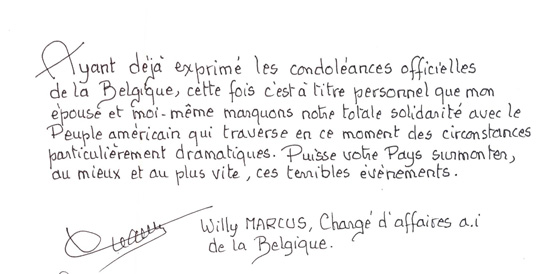 Ayant déjà exprimé les condoléances officielles
de la Belgique, cette fois c'est à titre personnel que mon
épouse et moi-même marquons notre totale solidarité avec le
Peuple américain qui traverse en ce moment des circonstances
particulièrement dramatiques. Puisse votre Pays surmonter,
au mieux et au plus vite, ces terribles événements.
Willy MARCUS, Chargé d'affaires a.i
de la Belgique.